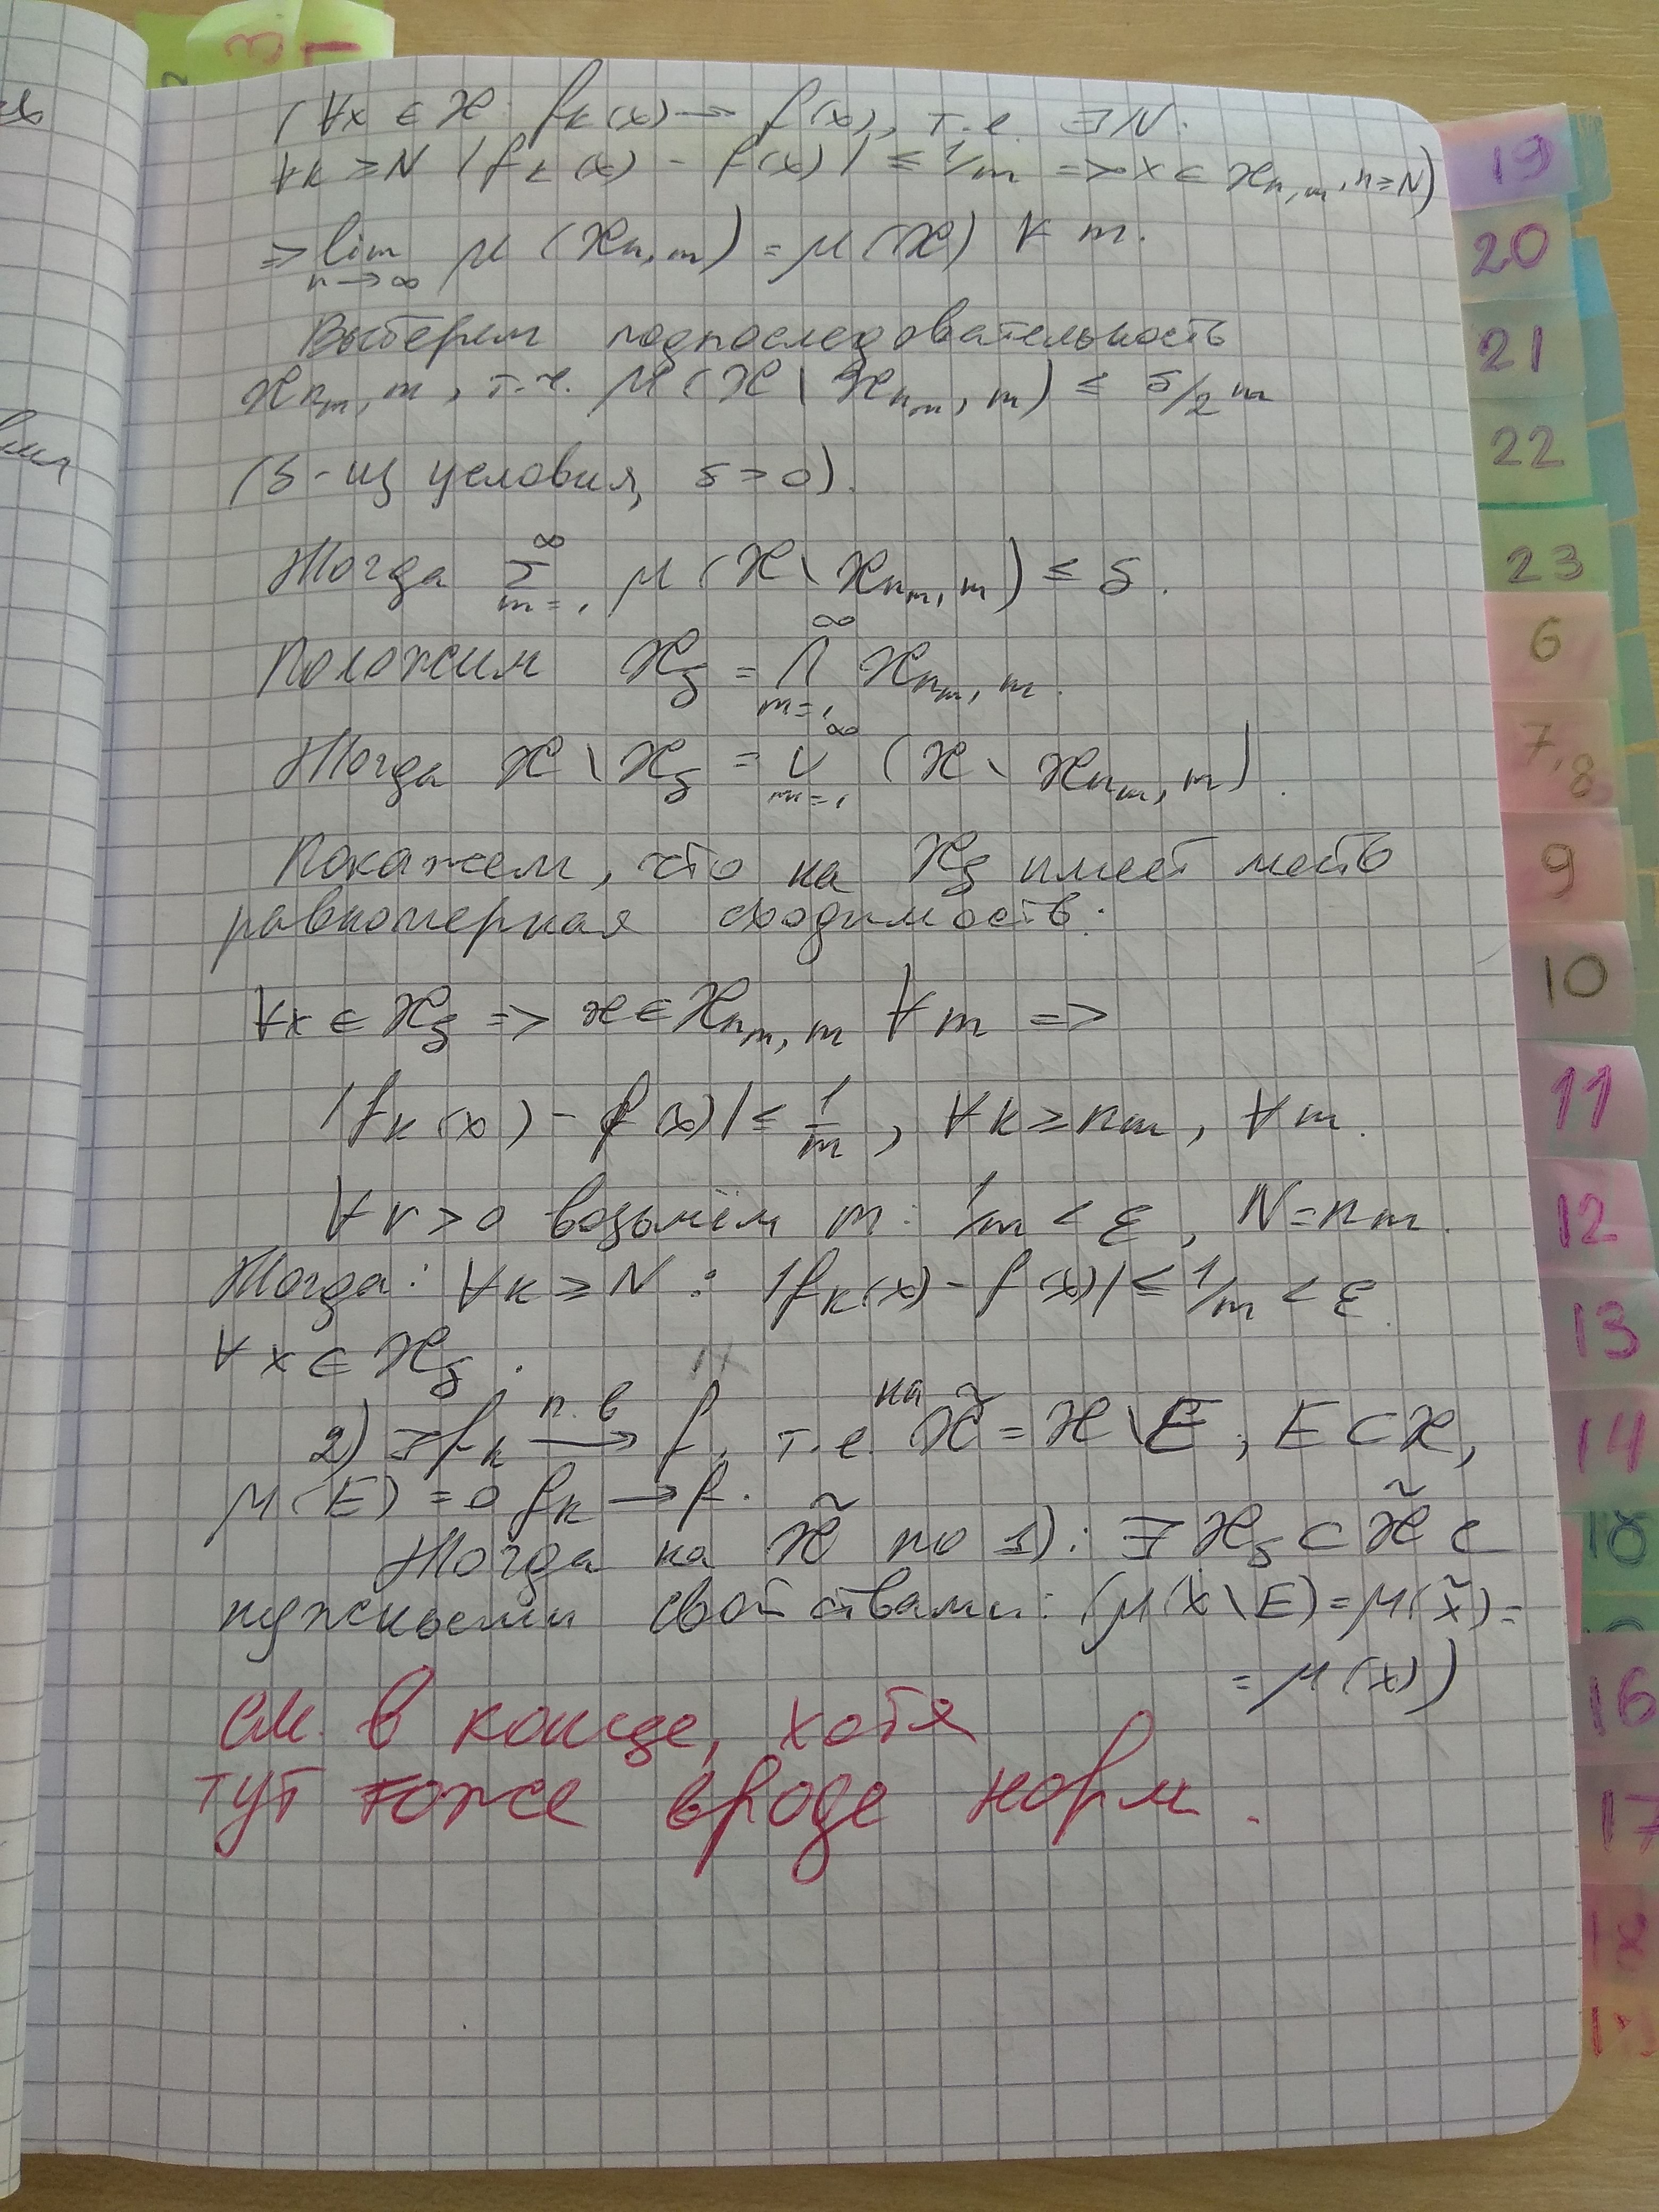 (∀x ∈ X: f_k(x) → f(x), т.е. ∃N:
∀k ≥ N |f_k(x) - f(x)| ≤ 1/m => x ∈ X_{n,m}, n ≥ N)
=> lim_{n→∞} μ(X_{n,m}) = μ(X) ∀m.
Выберем подпоследовательность
X_{n_m,m}, т.ч. μ(X \ X_{n_m,m}) ≤ δ/2^m
(δ - из условия, δ > 0).
Тогда ∑_{m=1}^∞ μ(X \ X_{n_m,m}) ≤ δ.
Положим X_δ = ∩_{m=1}^∞ X_{n_m,m}.
Тогда X \ X_δ = ∪_{m=1}^∞ (X \ X_{n_m,m}).
Покажем, что на X_δ имеет место
равномерная сходимость:
∀x ∈ X_δ => x ∈ X_{n_m,m} ∀m =>
|f_k(x) - f(x)| ≤ 1/m, ∀k ≥ n_m, ∀m.
∀r > 0 возьмём m: 1/m < ε, N = n_m.
Тогда: ∀k ≥ N : |f_k(x) - f(x)| ≤ 1/m < ε
∀x ∈ X_δ.
2) ∃ f_k →^{п.в} f, т.е. на X̃ = X \ E, E ⊂ X,
μ(E) = 0 f_k → f.
Тогда на X̃ по 1): ∃ X_δ ⊂ X̃ с
нужными свойствами: (μ(X \ E) = μ(X̃) =
= μ(X))
см. в конце, хотя
тут тоже вроде норм.
3
1
19
20
21
22
23
6
7,8
9
10
11
12
13
14
18
16
17
18